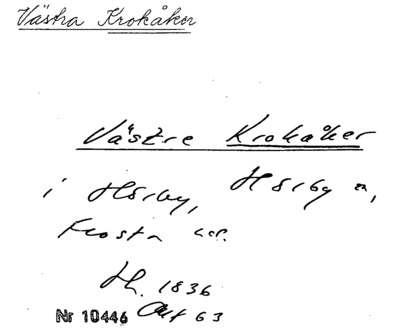 Västra Krokåker
Västre Krokåker
i Hörby, Hörby sn,
Frosta hd.
Jh. 1836
Nr 10446 Akt 63